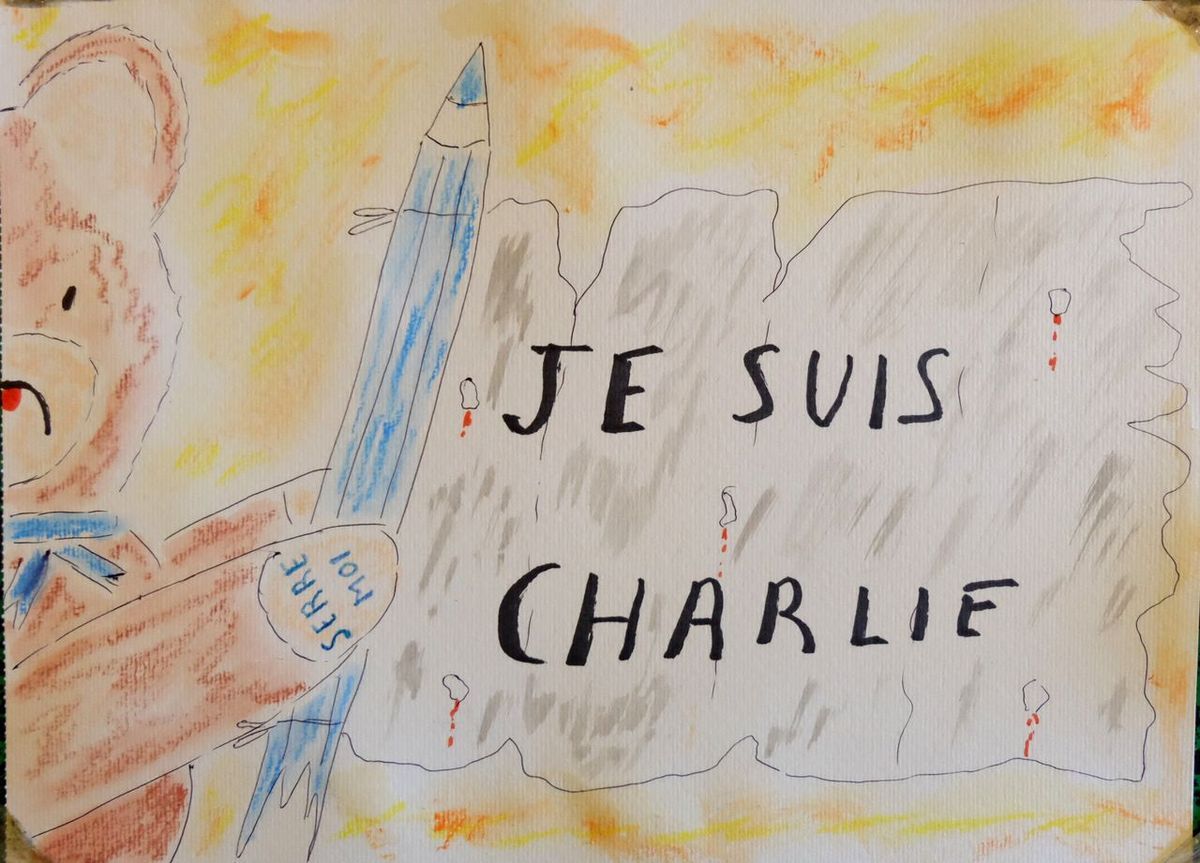 JE SUIS
CHARLIE
SERRE
MOI